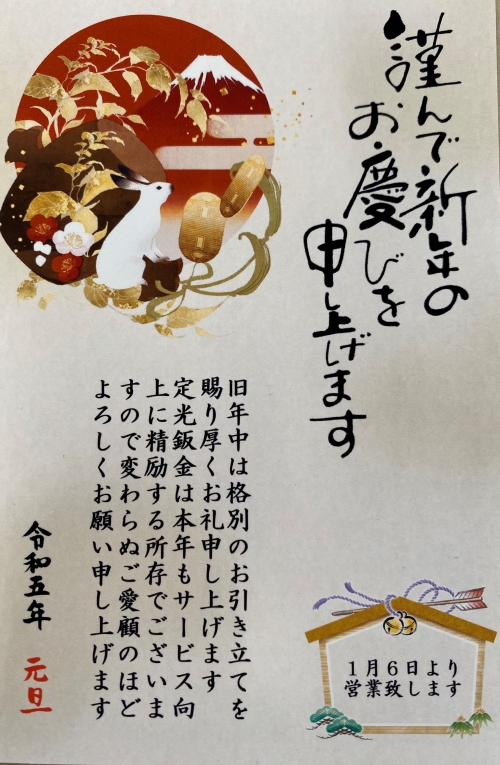 謹んで新年の
お慶びを
申し上げます
旧年中は格別のお引き立てを
賜り厚くお礼申し上げます
定光鈑金は本年もサービス向
上に精励する所存でございま
すので変わらぬご愛顧のほど
よろしくお願い申し上げます
令和五年 元旦
1月6日より
営業致します